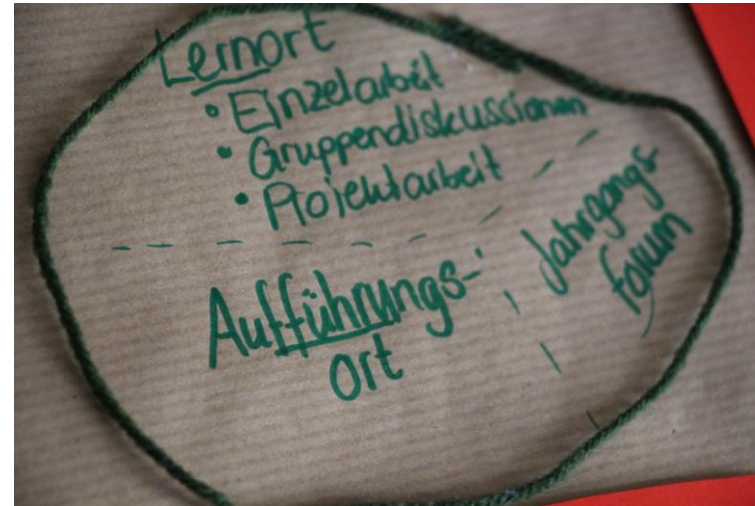 Lernort
• Einzelarbeit
• Gruppendiskussionen
• Projektarbeit
Aufführungs-
ort
Jahrgangs-
forum